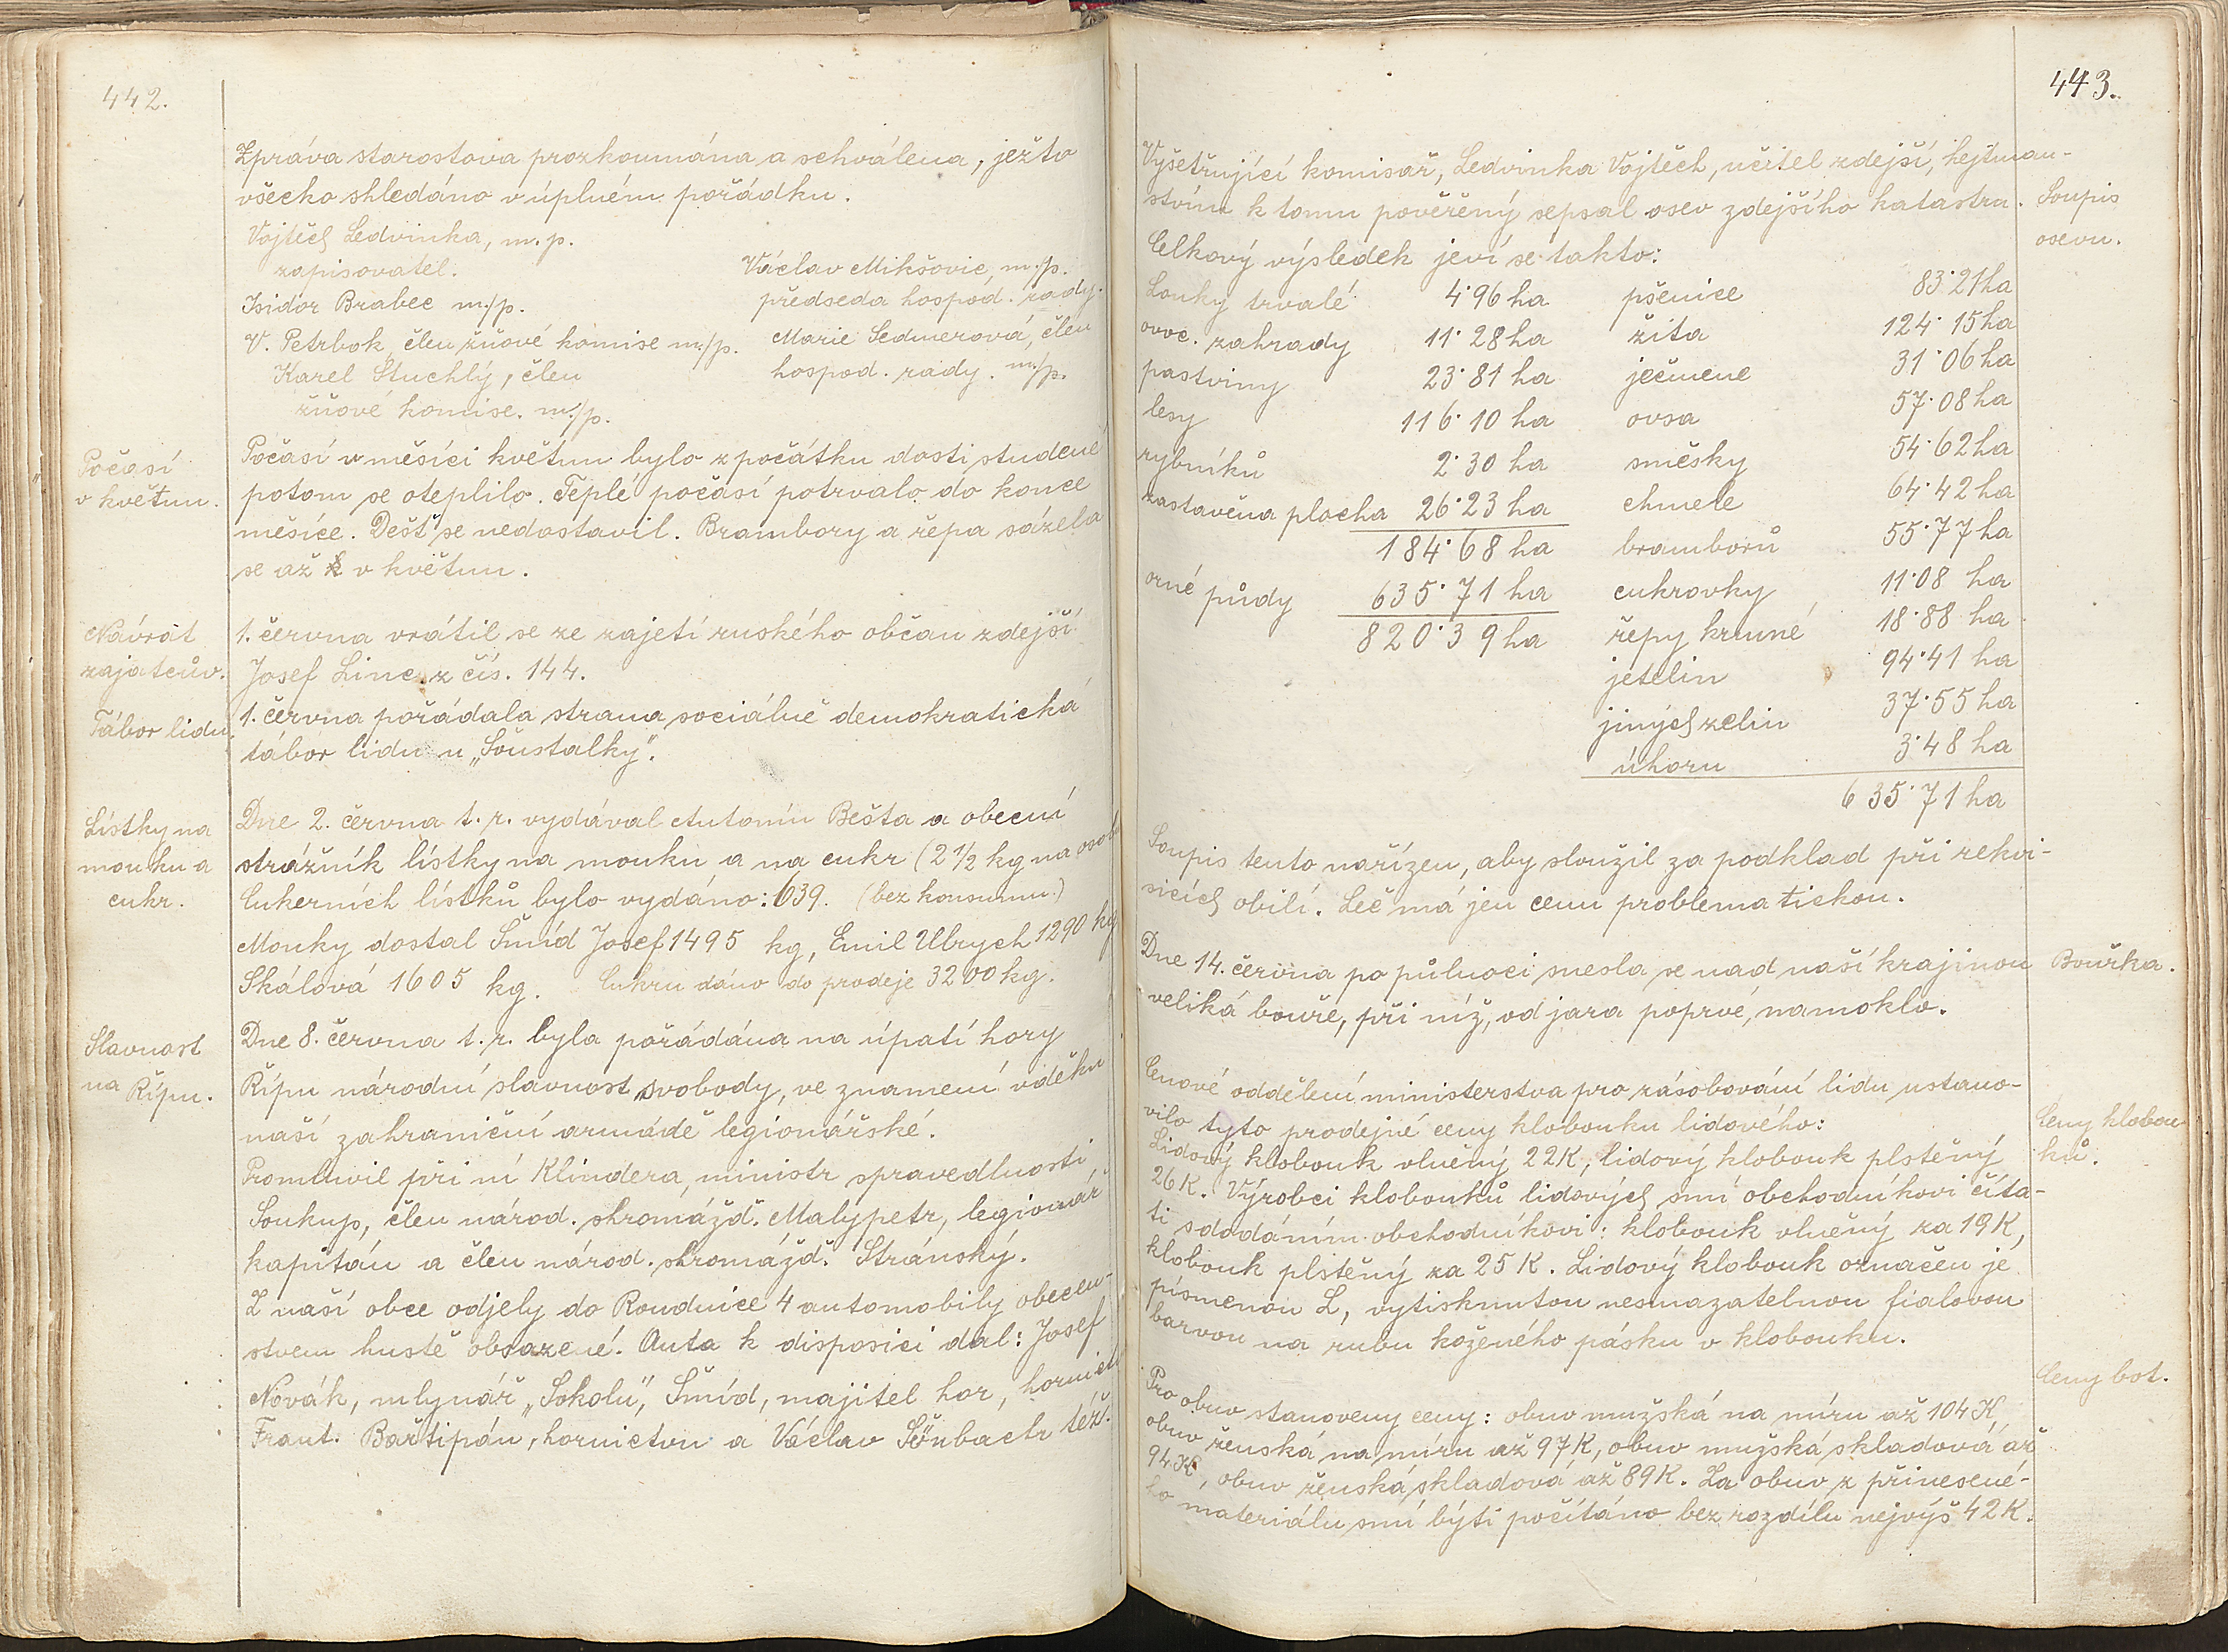 442.
Zpráva starostova prozkoumána a schválena, ježto
všecko shledáno v úplném pořádku.
Vojtěch Ledvinka, m. p.
zapisovatel.
Václav Mikšovic, m./p.
předseda hospod. rady.
Isidor Brabec m./p.
V. Petrbok, člen žňové komise m./p.
Marie Sedmerová, člen
hospod. rady. m./p.
Karel Stuchlý, člen
žňové komise. m./p.
Počasí
v květnu.
Počasí v měsíci květnu bylo z počátku dosti studené
potom se oteplilo. Teplé počasí potrvalo do konce
měsíce. Dešť se nedostavil. Brambory a řepa sázela
se až v květnu.
Návrat
zajatcův.
1. června vrátil se ze zajetí ruského občan zdejší
Josef Linc z čís. 144.
Tábor lidu
1. června pořádala strana sociálně demokratická
tábor lidu u „Šoustalky".
Lístky na
mouku a
cukr.
Dne 2. června t. r. vydával Antonín Bešta a obecní
strážník lístky na mouku a na cukr (2 1/2 kg na osob
Cukerních lístků bylo vydáno: 639. (bez konsumu.)
Mouky dostal Šmíd Josef 1495 kg, Emil Ulrych 1290 kg
Skálová 1605 kg. Cukru dáno do prodeje 3200 kg.
Slavnost
na Řípu.
Dne 8. června t. r. byla pořádána na úpatí hory
Řípu národní slavnost svobody, ve znamení vděku
naší zahraniční armádě legionářské.
Promluvil při ní Klindera, ministr spravedlnosti,
Soukup, člen národ. shromážď. Malypetr, legionář
kapitán a člen národ. shromážď. Stránský.
Z naší obce odjely do Roudnice 4 automobily obecen-
stvem hustě obsazené. Auta k disposici dal: Josef
Novák, mlynář „Sokolu", Šmíd, majitel hor, hornict
Frant. Bařtipán, hornictvu a Václav Šönbach též.
443.
Vyšetřující komisař, Ledvinka Vojtěch, učitel zdejší, hejtman-
stvím k tomu pověřený sepsal osev zdejšího katastru.
Soupis
osevu.
Celkový výsledek jeví se takto:
Louky trvalé 4·96 ha pšenice 83·21 ha
ovoc. zahrady 11·28 ha žita 124·15 ha
pastviny 23·81 ha ječmene 31·06 ha
lesy 116·10 ha ovsa 57·08 ha
rybníků 2·30 ha směsky 54·62 ha
zastavěna plocha 26·23 ha chmele 64·42 ha
184·68 ha bramborů 55·77 ha
orné půdy 635·71 ha cukrovky 11·08 ha
820·39 ha řepy krmné 18·88 ha
jetelin 94·41 ha
jiných zelin 37·55 ha
úhoru 3·48 ha
635·71 ha
Soupis tento nařízen, aby sloužil za podklad při rekvi-
sicích obilí. Leč má jen cenu problematickou.
Dne 14. června po půlnoci snesla se nad naší krajinou
Bouřka.
veliká bouře, při níž, od jara poprvé, namoklo.
Cenové oddělení ministerstva pro zásobování lidu ustano-
vilo tyto prodejné ceny klobouku lidového:
Ceny klobou-
ků.
Lidový klobouk vlněný 22 K, lidový klobouk plstěný
26 K. Výrobci klobouků lidových smí obchodníkovi číta-
ti s dodáním obchodníkovi: klobouk vlněný za 19 K,
klobouk plstěný za 25 K. Lidový klobouk označen je
písmenou L, vytisknutou nesmazatelnou fialovou
barvou na rubu koženého pásku v klobouku.
Ceny bot.
Pro obuv stanoveny ceny: obuv mužská na míru až 104 K,
obuv ženská na míru až 97 K, obuv mužská skladová až
94 K, obuv ženská skladová až 89 K. Za obuv z přinesené-
ho materiálu smí býti počítáno bez rozdílu nejvýš 42 K.